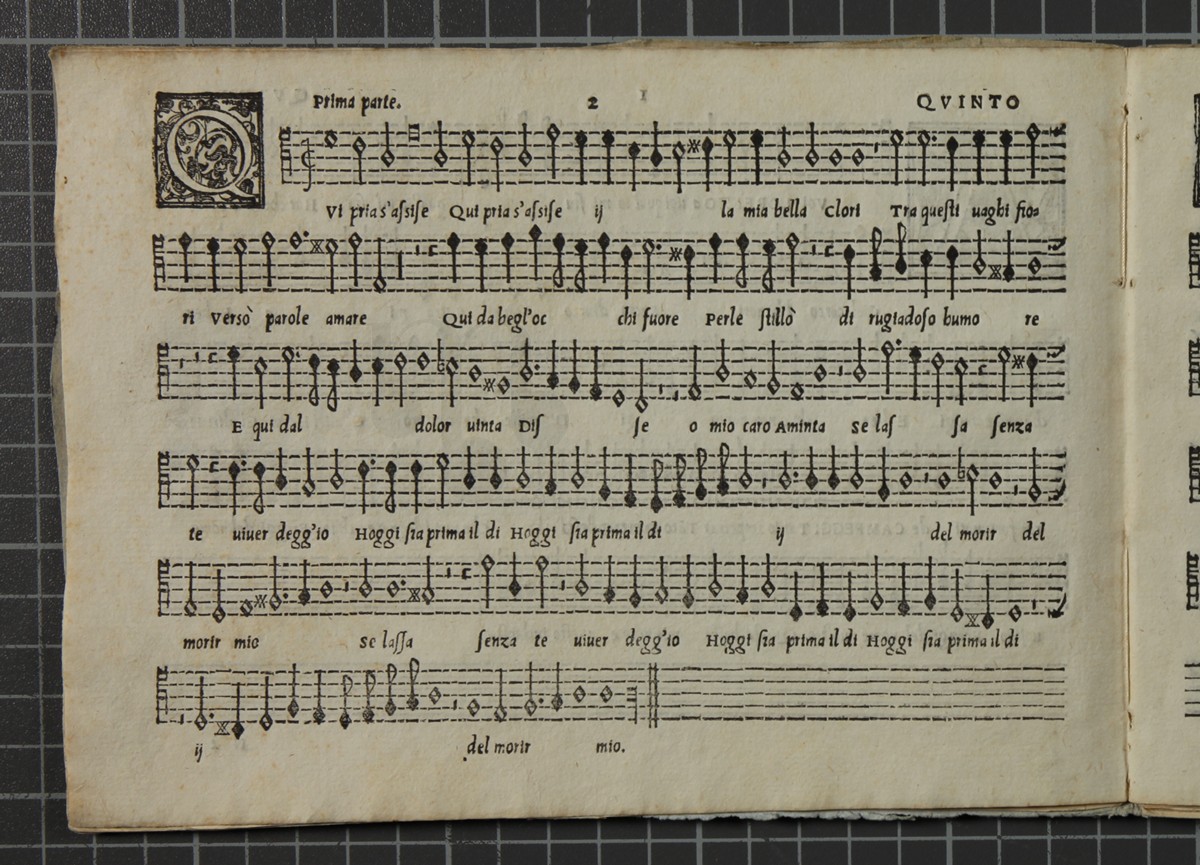 Prima parte. 2 QVINTO
QVI pria s'assise Qui pria s'assise ij la mia bella Clori Tra questi uaghi fio-
ri Versò parole amare Qui da begl'oc chi fuore Perle stillò di rugiadoso humo re
E qui dal dolor uinta Dis se o mio caro Aminta Se las sa senza
te uiuer degg'io Hoggi sia prima il di Hoggi sia prima il di ij del morir del
morir mio se lassa senza te uiuer degg'io Hoggi sia prima il di Hoggi sia prima il di
ij del morir mio.